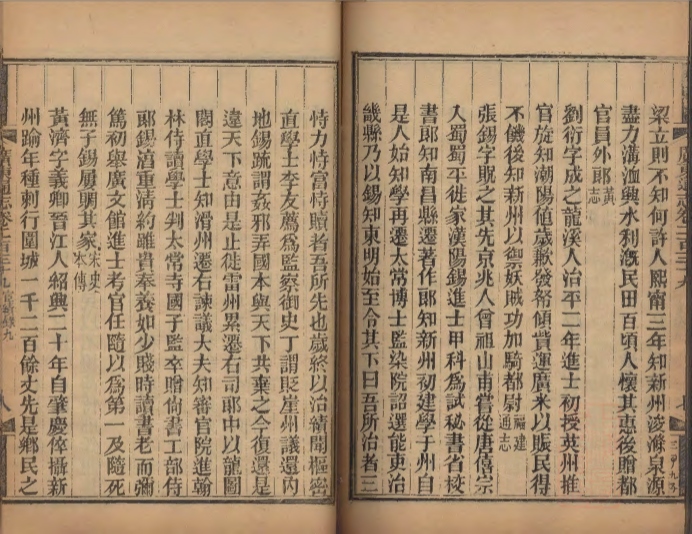 梁立則不知何許人熙甯三年知新州浚滌泉源
盡力溝洫興水利漑民田百頃人懷其惠後贈都
官員外郎黃志
劉衍字成之龍溪人治平二年進士初授英州推
官旋知潮陽値歲歉發帑傾貲運廣米以賑民得
不饑後知新州以御妖賊功加騎都尉福建通志
張錫字貺之其先京兆人曾祖山甫嘗從唐僖宗
入蜀蜀平徙家漢陽錫進士甲科爲試秘書省校
書郎知南昌縣遷著作郎知新州初建學于州自
是人始知學再遷太常博士監染院詔選能更治
畿縣乃以錫知東明始至令其下曰吾所治者三
恃力恃富恃贖者吾所先也歲終以治績聞樞密
直學士李友薦爲監察御史丁謂貶崖州議還內
地錫疏謂姦邪弄國本與天下共棄之今復還是
違天下意由是止徙雷州累遷右司郎中以龍圖
閣直學士知滑州遷右諫議大夫知審官院進翰
林侍讀學士判太常寺國子監卒贈尙書工部侍
郎錫湻重淸約雖貴奉養如少賤時讀書老而彌
篤初舉廣文館進士考官任隨以爲第一及隨死
無子錫屢賙其家宋史本傳
黃濟字義卿晉江人紹興二十年自肇慶倅攝新
州踰年種刺竹圍城一千二百餘丈先是鄉民之
廣東通志卷二百三十九 宦績錄九
八